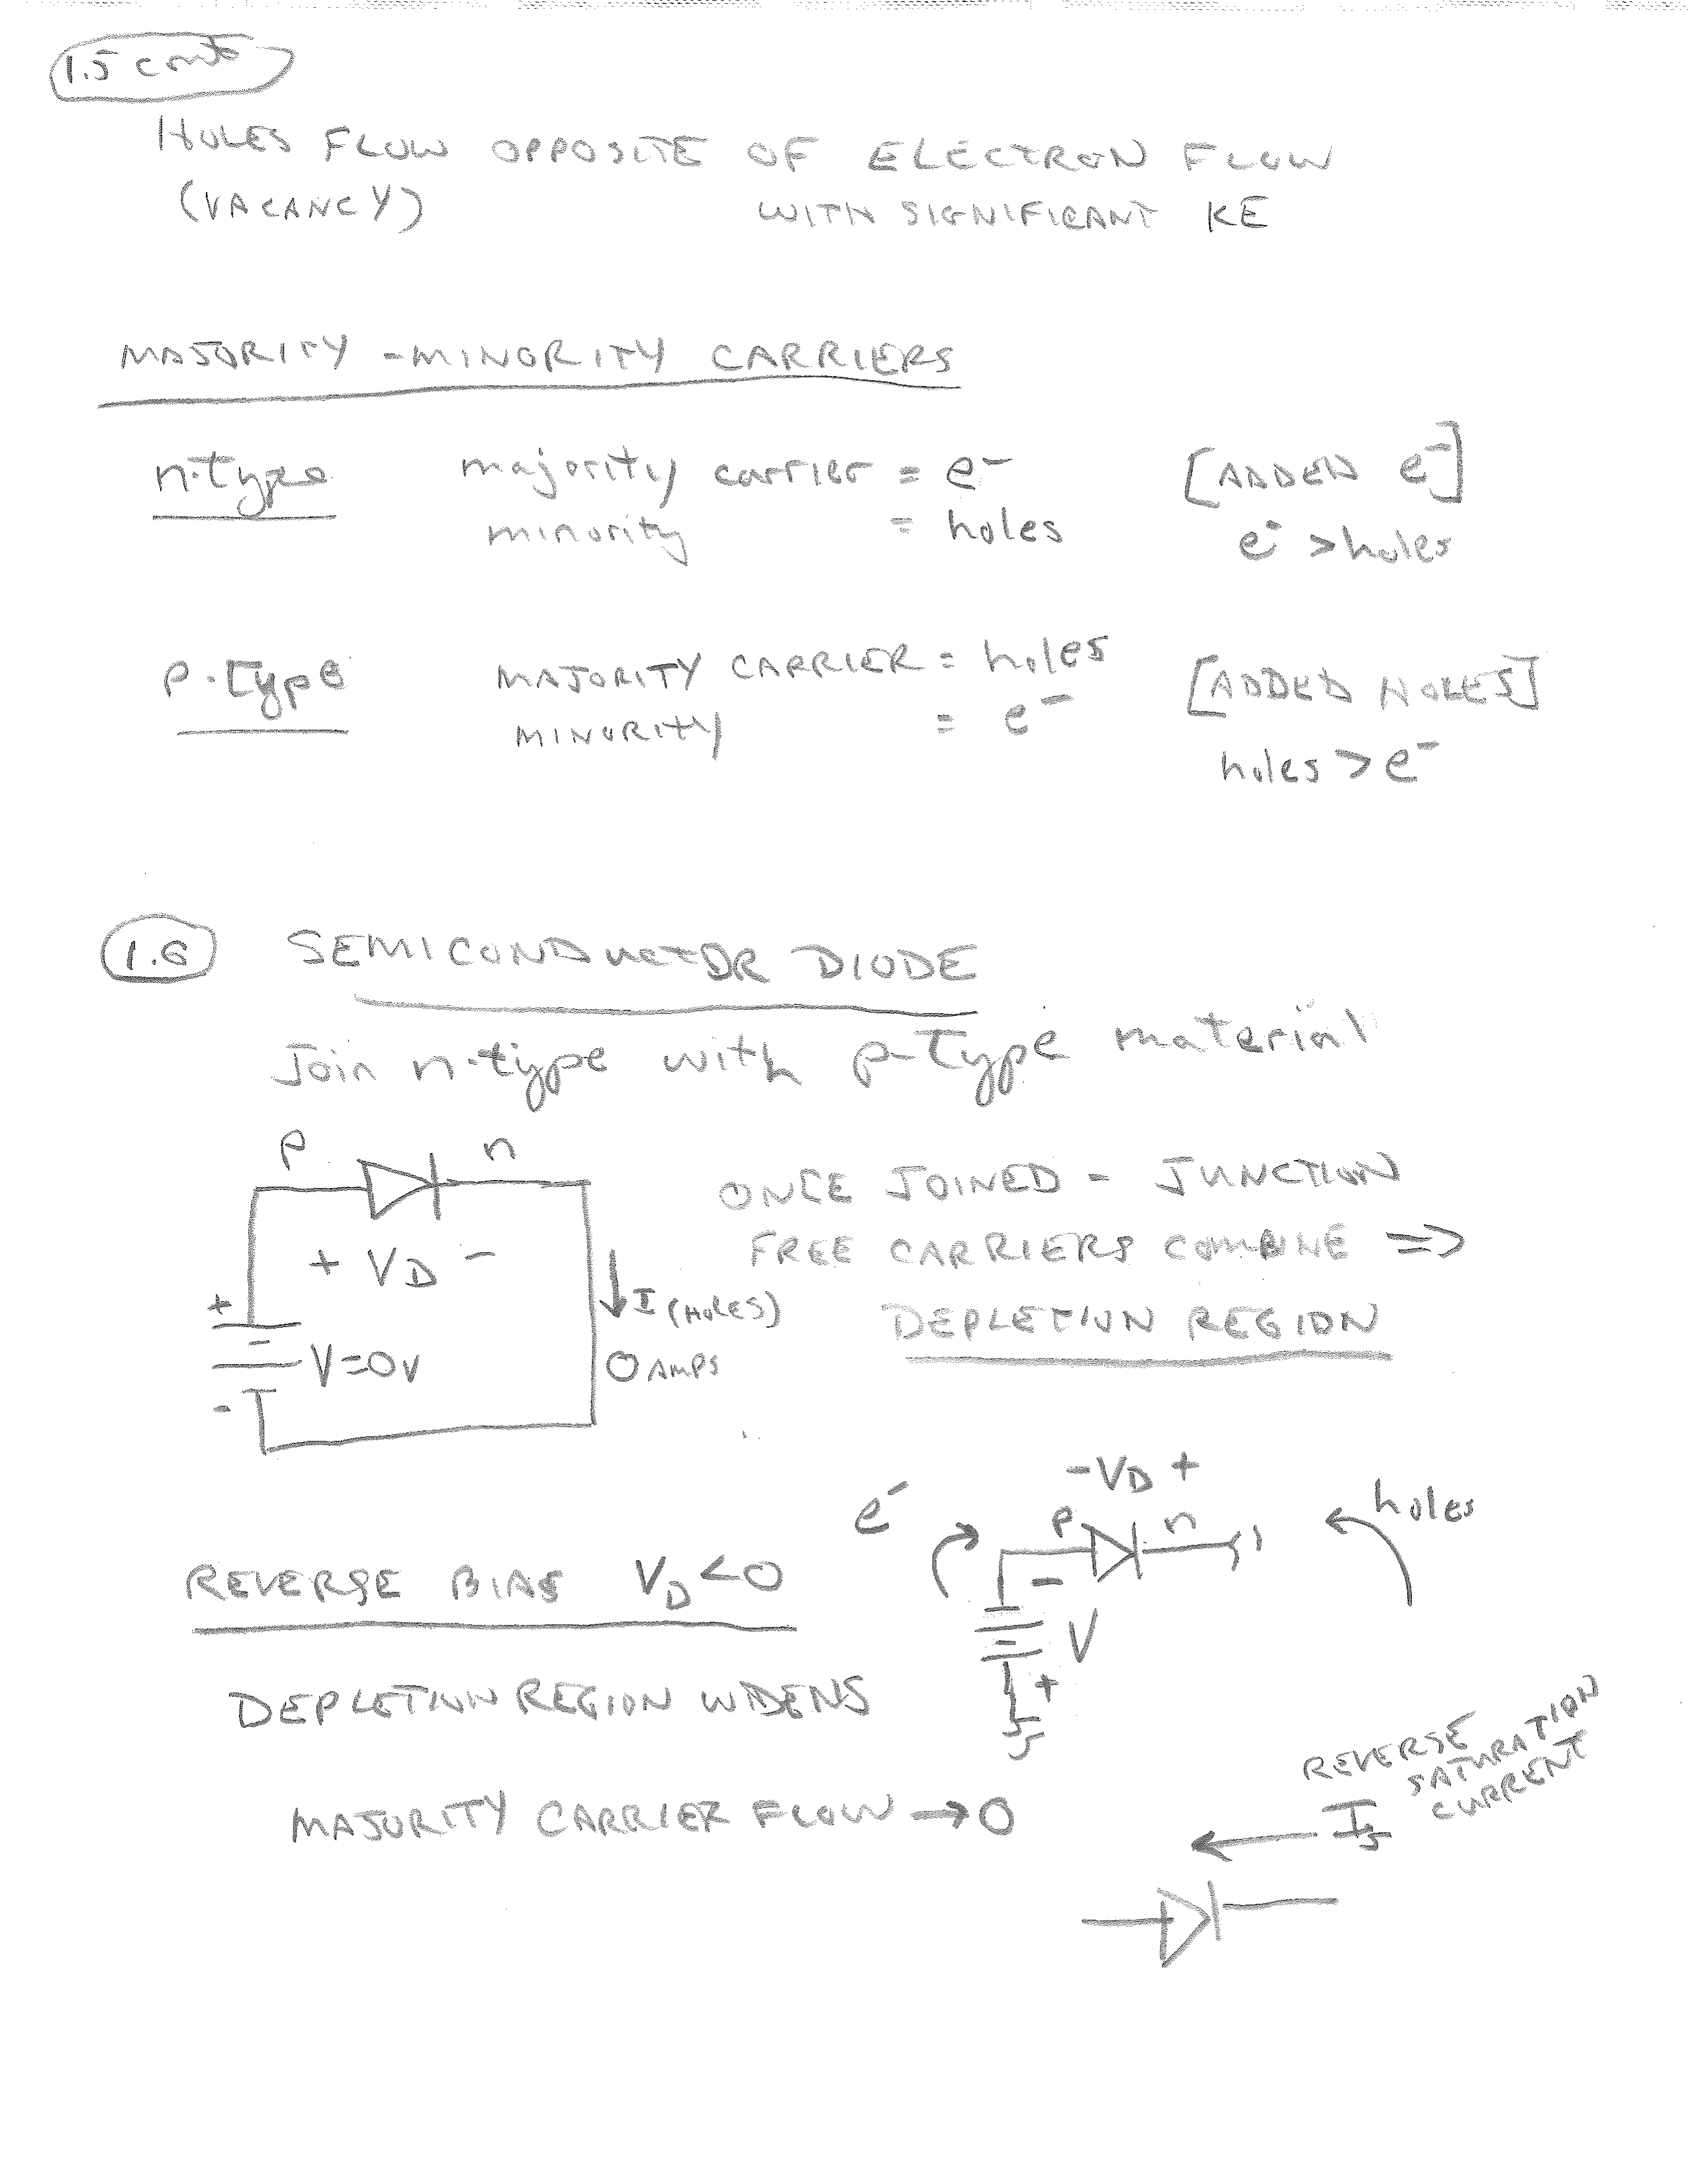 1.5 cont
HOLES FLOW OPPOSITE OF ELECTRON FLOW
(VACANCY) WITH SIGNIFICANT KE
MAJORITY - MINORITY CARRIERS
n-type majority carrier = e⁻ [ADDED e⁻]
minority = holes e⁻ > holes
p-type MAJORITY CARRIER = holes [ADDED HOLES]
MINORITY = e⁻ holes > e⁻
1.6 SEMICONDUCTOR DIODE
Join n-type with p-type material
p n
+ VD -
+
V=0v
-
I (HOLES)
0 AMPS
ONCE JOINED - JUNCTION
FREE CARRIERS COMBINE =>
DEPLETION REGION
- VD +
e⁻ p n holes
REVERSE BIAS VD < 0
-
V
+
DEPLETION REGION WIDENS
MAJORITY CARRIER FLOW → 0
REVERSE
SATURATION
CURRENT
← Is